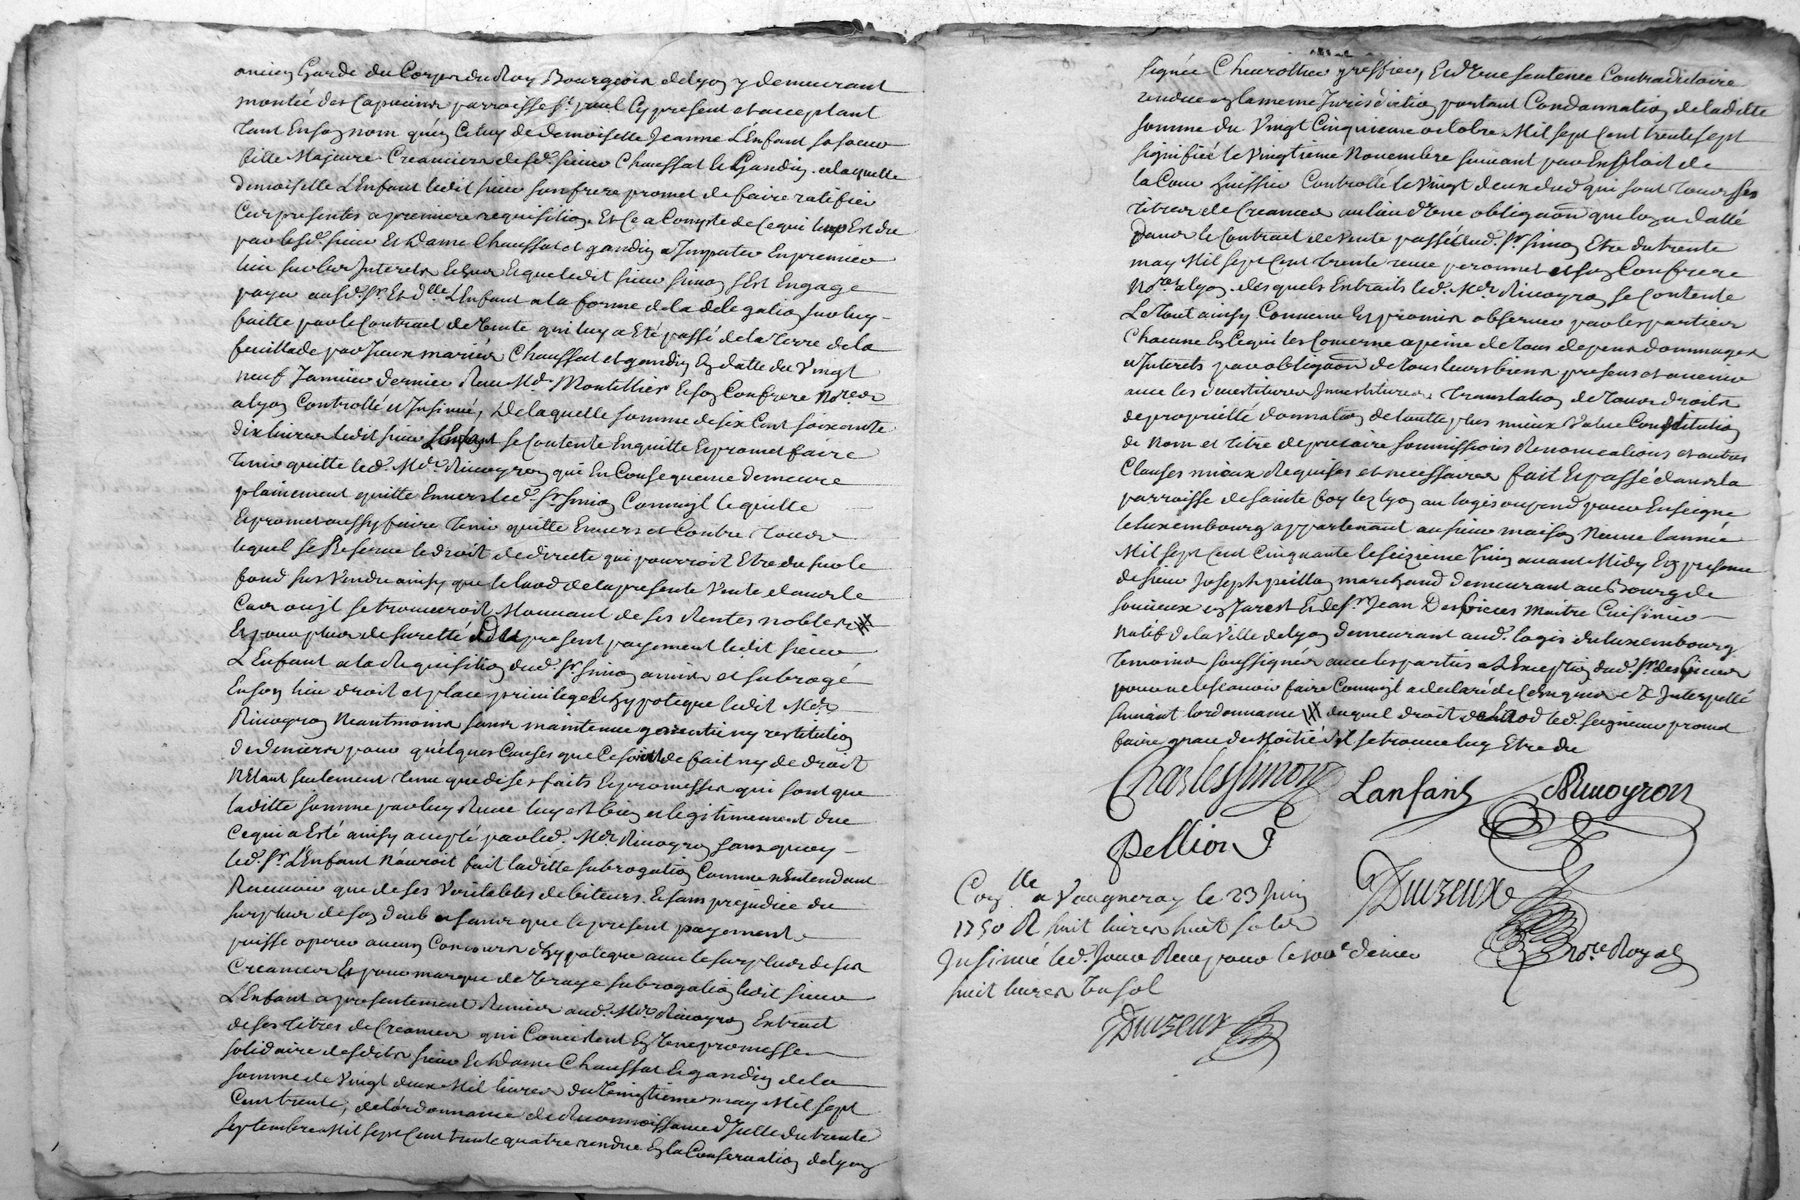 ancien Garde du Corps du Roy Bourgeois de Lyon y demeurant
montée des Capucins parroisse St. paul Cy present et acceptant
Tant En son nom qu'en Celuy de demoiselle Jeanne L'Enfant sa soeur
fille Majeure Creanciers desd. sieur Chaussat et Gandin, a laquelle
Demoiselle L'Enfant ledit sieur son frere promet de faire ratiffier
Ces presentes a premiere requisition, Et Ce a Compte de Ce qui luy Est du
par lesd. sieur Et Dame Chaussat et gandin a Imputer En premier
lieu sur les Interets Echus Et que ledit sieur Simon s'Est Engagé
payer ausd. Sr. Et dlle L'Enfant a la forme de la delegation sur luy
faitte par le Contract de Vente qui luy a Eté passé de la Terre de la
feuillade par Iceux mariés Chaussat et gandin En datte du Vingt
neuf Janvier dernier Receu Me. Montellier Et son Confrere Nores
a Lyon Controllé et Insinué, De laquelle somme de six Cent soixante
dix livres ledit sieur L'Enfant se Contente En quitte Et promet faire
Tenir quitte led. Me. Rivoyron qui En Consequence demeure
plainement quitte Envers led. Sr. Simon Comme Il le quitte
Et promet aussy faire Tenir quitte Envers et Contre Tous
lequel se Reserve le droit de directe qui pourroit Etre du sur le
fond sus Vendu ainsy que le laod de la presente Vente dans le
Cas ou Il se trouveroit Mouvant de ses Rentes nobles
Et pour plus de sureté du present payement ledit sieur
L'Enfant a la Requisition dud. Sr. Simon a mis et subrogé
En son lieu droit et place privilege et hypoteque ledit Me.
Rivoyron Neantmoins sans maintenue garentie ny restitution
de deniers pour quelques Causes que Ce soit de fait ny de droit
N'Etant seulement Tenu que de ses faits Et promesses qui sont que
laditte somme par luy Receue luy est bien et legitimement due
Ce qui a Esté ainsy accepté par led. Me. Rivoyron sans quoy
led. Sr. L'Enfant N'auroit fait laditte subrogation Comme N'Entendant
Recevoir que de ses Veritables debiteurs Et sans prejudice du
surplus de son deub et sans que le present payement
puisse operer aucun Concours d'hypoteque avec le surplus de ses
Creances Et pour marque de Vraye subrogation ledit sieur
L'Enfant a presentement Remis aud. Me. Rivoyron Extrait
de ses Titres de Creances qui Consistent En Une promesse
solidaire desdits sieur Et Dame Chaussat Et gandin de la
somme de Vingt deux Mil livres du Vingtieme may Mil sept
Cent trente, de l'ordonnance de Reconnoissance d'Icelle du trente
septembre Mil sept Cent trente quatre rendue En la Conservation de Lyon
signée greffier, Et d'Une sentence Contradictoire
rendue en la meme Jurisdiction portant Condamnation de laditte
somme du Vingt Cinquieme octobre Mil sept Cent trente sept
signifiée le Vingtieme Novembre suivant par Exploit de
la Cour huissier Controllé le Vingt deux dud. qui sont Tous ses
Titres de Creances au lieu d'Une obligaõn que l'on a datté
dans le Contract de Vente passé aud. Sr. Simon Etre du trente
may Mil sept Cent trente receue peronnet et son Confrere
Nores a Lyon, desquels Extraits led. Me. Rivoyron se Contente
Le Tout ainsy Convenu Et promis observer par les parties
Chacune En Ce qui les Concerne a peine de Tous depens dommages
et Interets par obligaõn de Tous leurs biens presens et avenir
avec les devestitures Investitures, Translation de Tous droits
de proprieté donnation de Toutte plus mieux Value Constitution
de Nom et Titre de precaire soumissions Renonciations et autres
Clauses mieux Requises et necessaires fait Et passé dans la
parroisse de sainte foy lez Lyon au logis ou pend pour Enseigne
le luxembourg appartenant au sieur maison Neuve l'année
Mil sept Cent Cinquante le seizieme Juin avant Midy En presence
de sieur Joseph peillon marchand demeurant au Bourg de
Soucieux en Jarest Et de Sr. Jean Desspieces Maitre Cuisinier
Natif de la Ville de Lyon demeurant aud. logis du luxembourg
Temoins soussignés avec les parties a L'Exception dud. Sr.
pour ne le scavoir faire Comme Il a declaré de Ce Enquis et Interpellé
suivant l'ordonnance duquel droit de laod led. seigneur promet
faire grace de Moitié s'Il se trouve luy Etre du
Charles Simon Lanfant Rivoyron
Pellion
Duizeux
Conlle a Vaugneray le 23 Juin
1750 R huit livres huit sols
Insinué led. Jour Receu pour le 100e denier
huit livres Un sol
Nore Royal
Duizeux